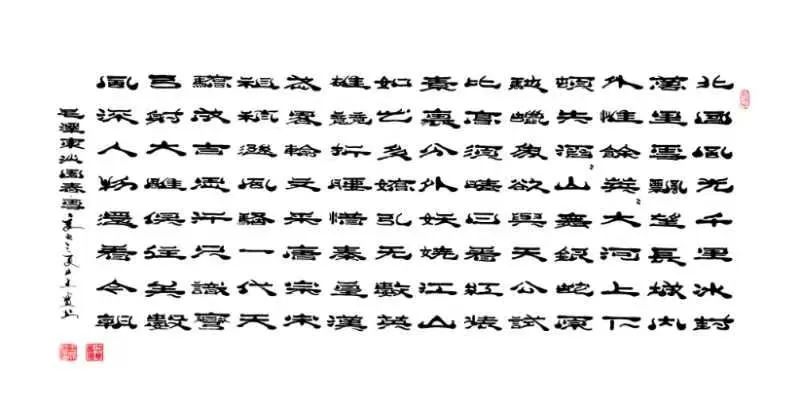 北國風光千里冰封
萬里雪飄望長城内
外惟餘莽々大河上下
頓失滔々山舞銀蛇原
馳蠟象欲與天公試
比高須晴日看紅裝
素裹分外妖嬈江山
如此多嬌引无數英
雄競折腰惜秦皇漢
武略輸文采唐宗宋
祖稍遜風騷一代天
驕成吉思汗只識彎
弓射大雕俱往矣數
風流人物還看今朝
毛澤東沁園春雪